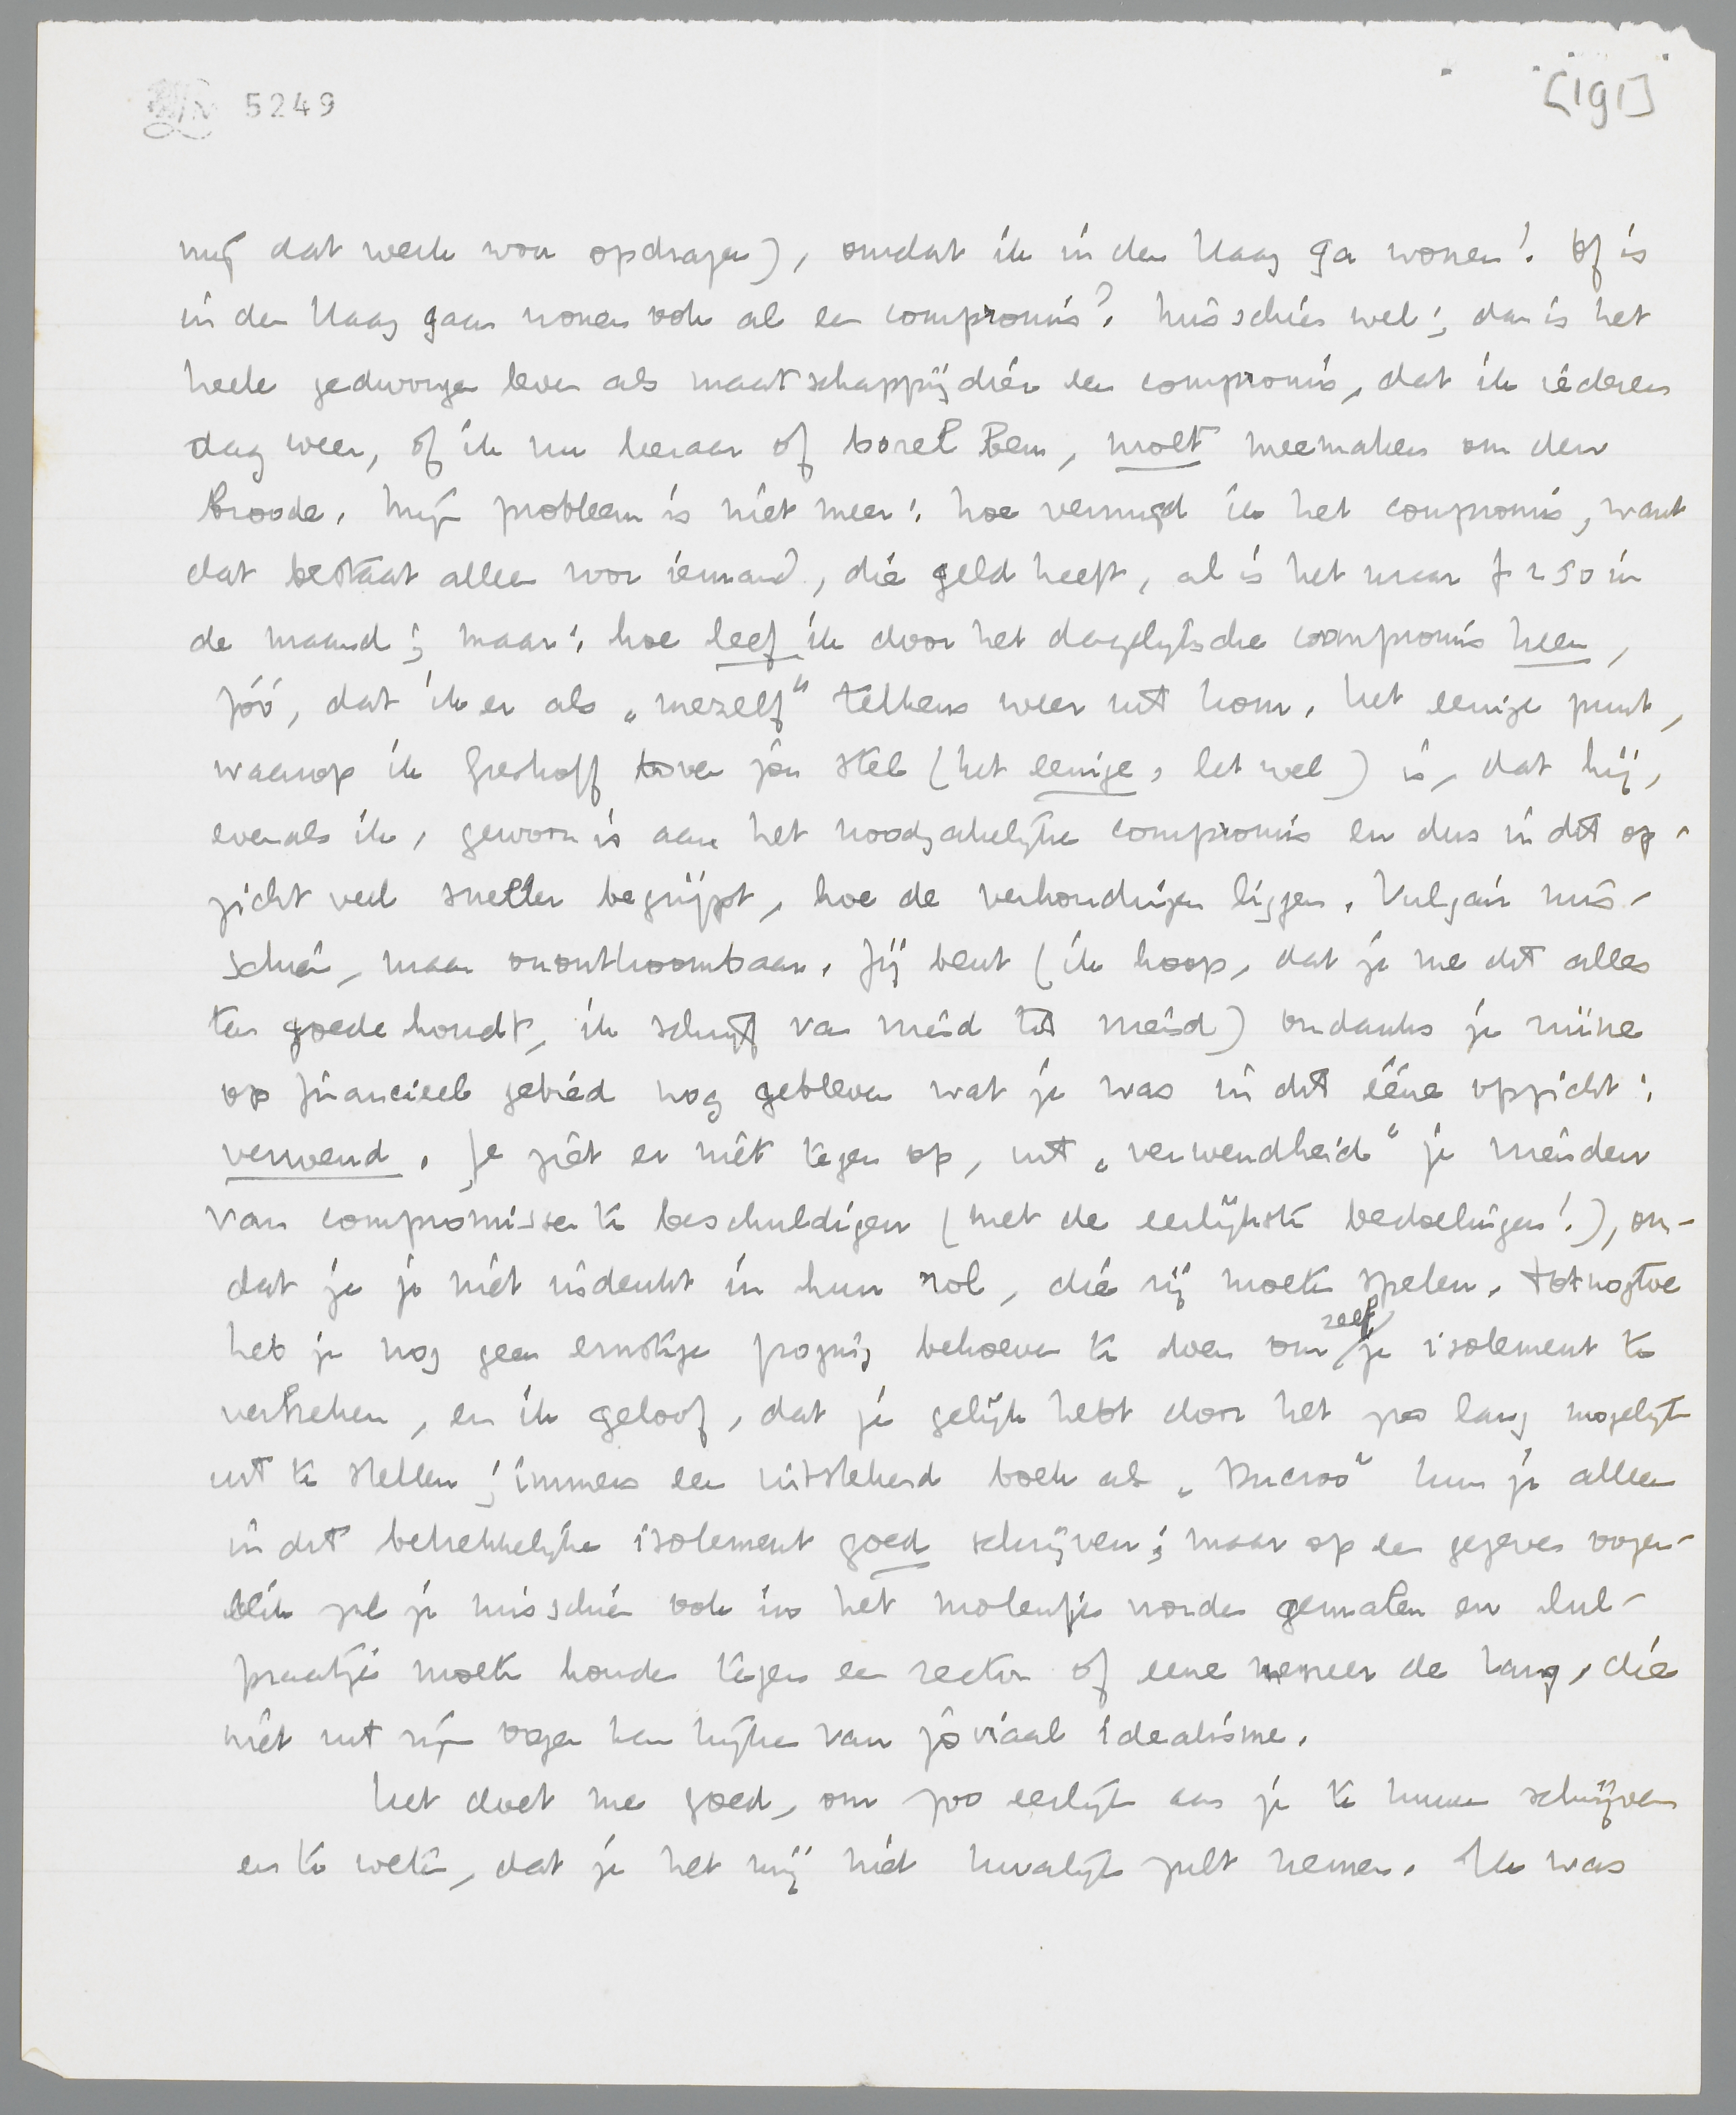 5249
[191]
mij dat werk wou opdragen), omdat ik in den Haag ga wonen! Of is
in den Haag gaan wonen ook al een compromis? Misschien wel; dan is het
heele gedwongen leven als maatschappijdier een compromis, dat ik iederen
dag weer, of ik nu leeraar of borel ben, moet meemaken om den
broode. Mijn probleem is niet meer: hoe vermijd ik het compromis, want
dat bestaat alleen voor iemand, die geld heeft, al is het maar f 250 in
de maand; maar: hoe leef ik door het dagelijksche compromis heen,
zóó, dat ik er als „mezelf” telkens weer uit kom. Het eenige punt,
waarop ik Greshoff boven jou stel (het eenige, let wel) is, dat hij,
evenals ik, gewoon is aan het noodzakelijke compromis en dus in dit op-
zicht veel sneller begrijpt, hoe de verhoudingen liggen. Vulgair mis-
schien, maar onontkoombaar. Jij bent (ik hoop, dat je me dit alles
ten goede houdt, ik schrijf van vriend tot vriend) ondanks je ruïne
op financieel gebied nog gebleven wat je was in dit ééne opzicht:
verwend. Je ziet er niet tegen op, uit „verwendheid” je vrienden
van compromissen te beschuldigen (met de eerlijkste bedoelingen!), om-
dat je je niet indenkt in hun rol, die zij moeten spelen. Totnogtoe
heb je nog geen ernstige poging behoeven te doen om zelf je isolement te
verbreken, en ik geloof, dat je gelijk hebt door het zoo lang mogelijk
uit te stellen; immers een uitstekend boek als „Ducroo” kun je alleen
in dit betrekkelijke isolement goed schrijven; maar op een gegeven oogen-
blik zal je misschien ook in het molentje worden gemalen en lul-
praatjes moeten houden tegen een rector of eene meneer de Lang, die
niet uit zijn oogen kan kijken van joviaal idealisme.
Het doet me goed, om zoo eerlijk aan je te kunnen schrijven
en te weten, dat je het mij niet kwalijk zult nemen. Ik was